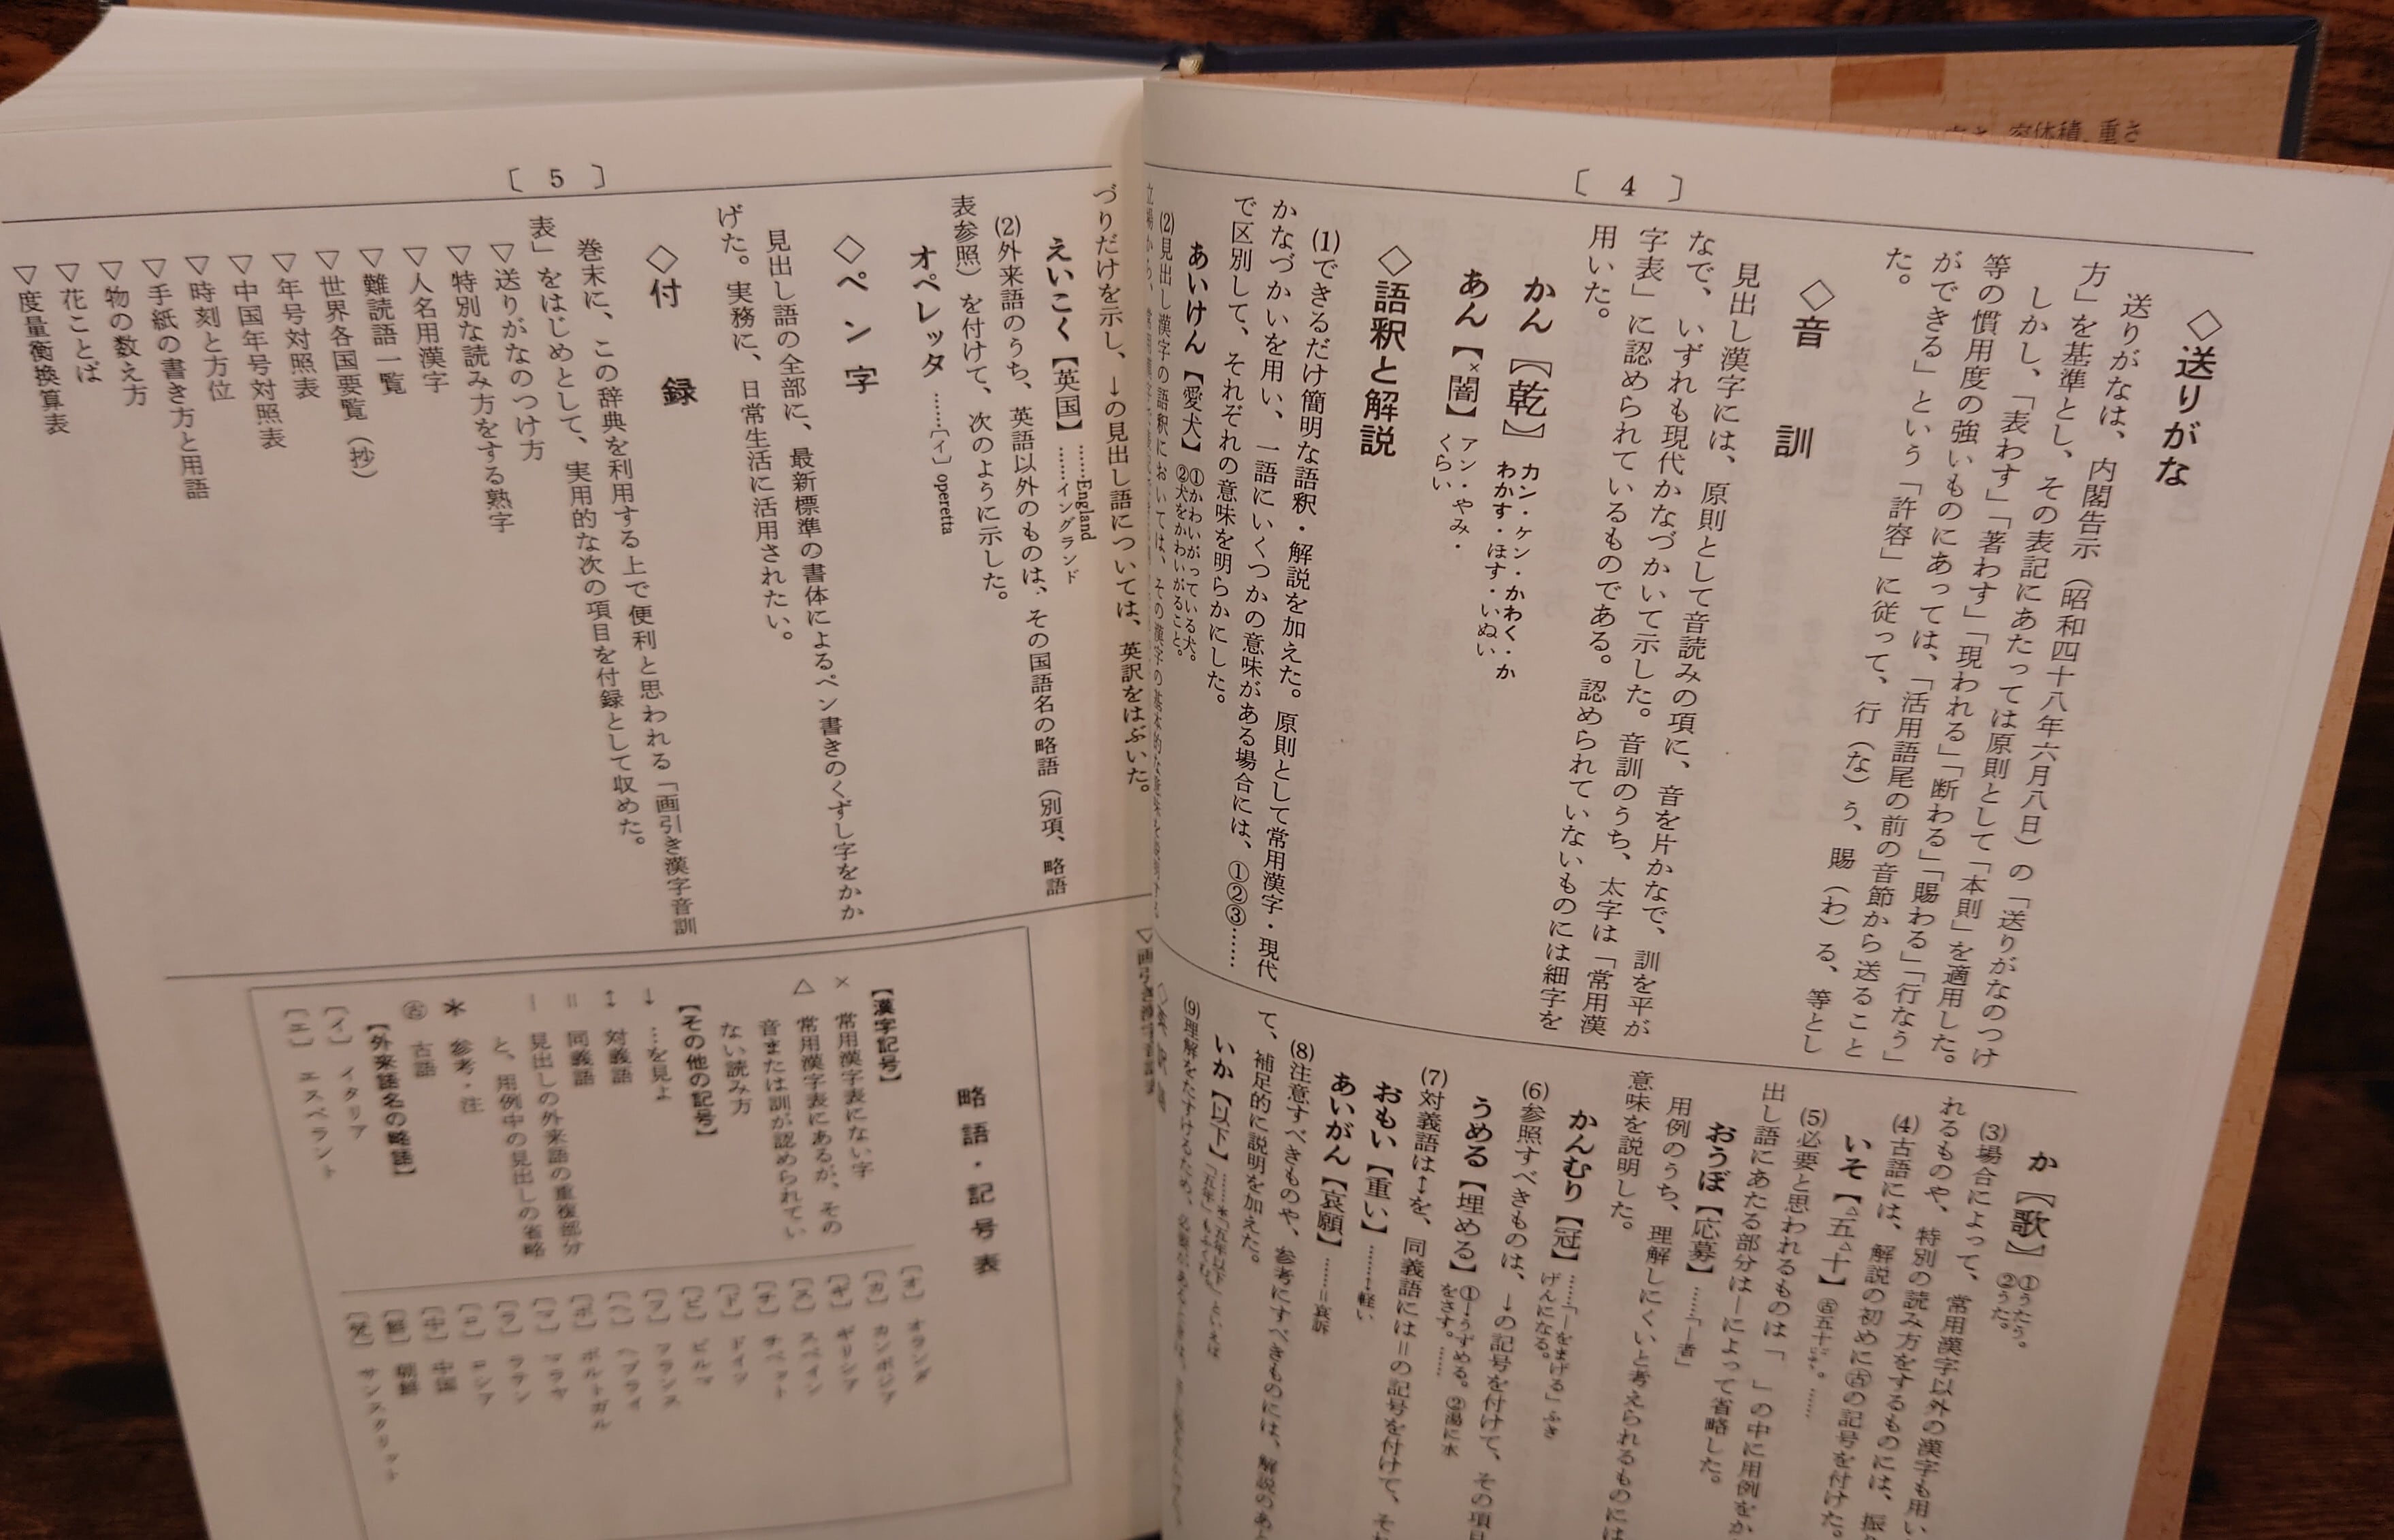 〔 4 〕
◇送りがな
送りがなは、内閣告示（昭和四十八年六月八日）の「送りがなのつけ
方」を基準とし、その表記にあたっては原則として「本則」を適用した。
しかし、「表わす」「著わす」「現われる」「断わる」「賜わる」「行なう」
等の慣用度の強いものにあっては、「活用語尾の前の音節から送ること
ができる」という「許容」に従って、行（な）う、賜（わ）る、等とし
た。
◇音訓
見出し漢字には、原則として音読みの項に、音を片かなで、訓を平が
なで、いずれも現代かなづかいて示した。音訓のうち、太字は「常用漢
字表」に認められているものである。認められていないものには細字を
用いた。
かん【乾】カン・ケン・かわく・か
わかす・ほす・いぬい
あん【×闇】アン・やみ・
くらい
◇語釈と解説
⑴できるだけ簡明な語釈・解説を加えた。原則として常用漢字・現代
かなづかいを用い、一語にいくつかの意味がある場合には、①②③……
で区別して、それぞれの意味を明らかにした。
あいけん【愛犬】①かわいがっている犬。
②犬をかわいがること。
⑵見出し漢字の語釈においては、その漢字の
か【歌】①うたう。
②うた。
⑶場合によって、常用漢字以外の漢字も用い
れるものや、特別の読み方をするものには、振
⑷古語には、解説の初めに㊁の記号を付けた。
いそ【△五△十】㊁五十
⑸必要と思われるものは「　」の中に用例をか
出し語にあたる部分は—によって省略した。
おうぼ【応募】……「—者」
用例のうち、理解しにくいと考えられるものには
意味を説明した。
かんむり【冠】……「—をまげる」ふき
げんになる。
⑹参照すべきものは、→の記号を付けて、その項目
うめる【埋める】①→うずめる。②湯に水
をさす。……
⑺対義語は↔を、同義語には＝の記号を付けて、そ
おもい【重い】……↔軽い
あいがん【哀願】……＝哀訴
⑻注意すべきものや、参考にすべきものには、解説のあと
て、補足的に説明を加えた。
いか【以下】……＊「五年以下」といえば
⑼理解をたすけるため、
〔 5 〕
づりだけを示し、→の見出し語については、英訳をはぶいた。
えいこく【英国】……England
……イングランド
⑵外来語のうち、英語以外のものは、その国語名の略語（別項、略語
表参照）を付けて、次のように示した。
オペレッタ……〔イ〕operetta
◇ペン字
見出し語の全部に、最新標準の書体によるペン書きのくずし字をかか
げた。実務に、日常生活に活用されたい。
◇付録
巻末に、この辞典を利用する上で便利と思われる「画引き漢字音訓
表」をはじめとして、実用的な次の項目を付録として収めた。
▽送りがなのつけ方
▽特別な読み方をする熟字
▽人名用漢字
▽難読語一覧
▽世界各国要覧（抄）
▽年号対照表
▽中国年号対照表
▽時刻と方位
▽手紙の書き方と用語
▽物の数え方
▽花ことば
▽度量衡換算表
略語・記号表
【漢字記号】
× 常用漢字表にない字
△ 常用漢字表にあるが、その
音または訓が認められてい
ない読み方
【その他の記号】
→ …を見よ
↔ 対義語
＝ 同義語
— 見出しの外来語の重複部分
と、用例中の見出しの省略
＊ 参考・注
㊁ 古語
【外来語名の略語】
〔イ〕 イタリア
〔エ〕 エスペラント
〔オ〕 オランダ
〔カ〕 カンボジア
〔ギ〕 ギリシア
〔ス〕 スペイン
〔チ〕 チベット
〔ド〕 ドイツ
〔ビ〕 ビルマ
〔フ〕 フランス
〔ヘ〕 ヘブライ
〔ポ〕 ポルトガル
〔マ〕 マラヤ
〔ラ〕 ラテン
〔ロ〕 ロシア
〔中〕 中国
〔鮮〕 朝鮮
〔梵〕 サンスクリット